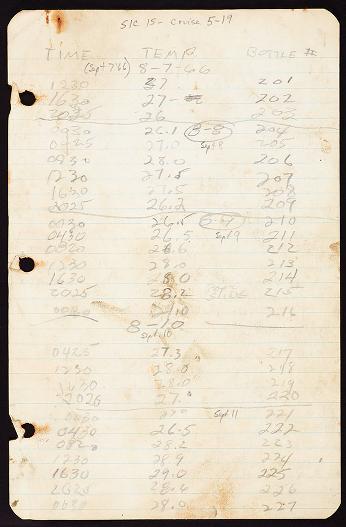 S/C 15- Cruise 5-19
TIME TEMP BOTTLE #
(Sept 7 66) 8-7-66
1230 27 201
1630 27- 202
2025 26 203
0030 26.1 8-8 204
0425 27.0 Sept 8 205
0830 28.0 206
1230 27.5 207
1630 27.5 208
2025 26.2 209
0030 26.5 8-9 210
0430 26.5 Sept 9 211
0830 26.6 212
1230 28.0 213
1630 28.0 214
2025 28.2 215
0030 216
8-10
Sept 10
0425 27.3 217
1230 28.0 218
1630 28.0 219
2026 27. 220
Sept 11 221
0430 26.5 222
28.2 223
1230 28.9 224
1630 29.0 225
2030 28.6 226
0030 28.0 227